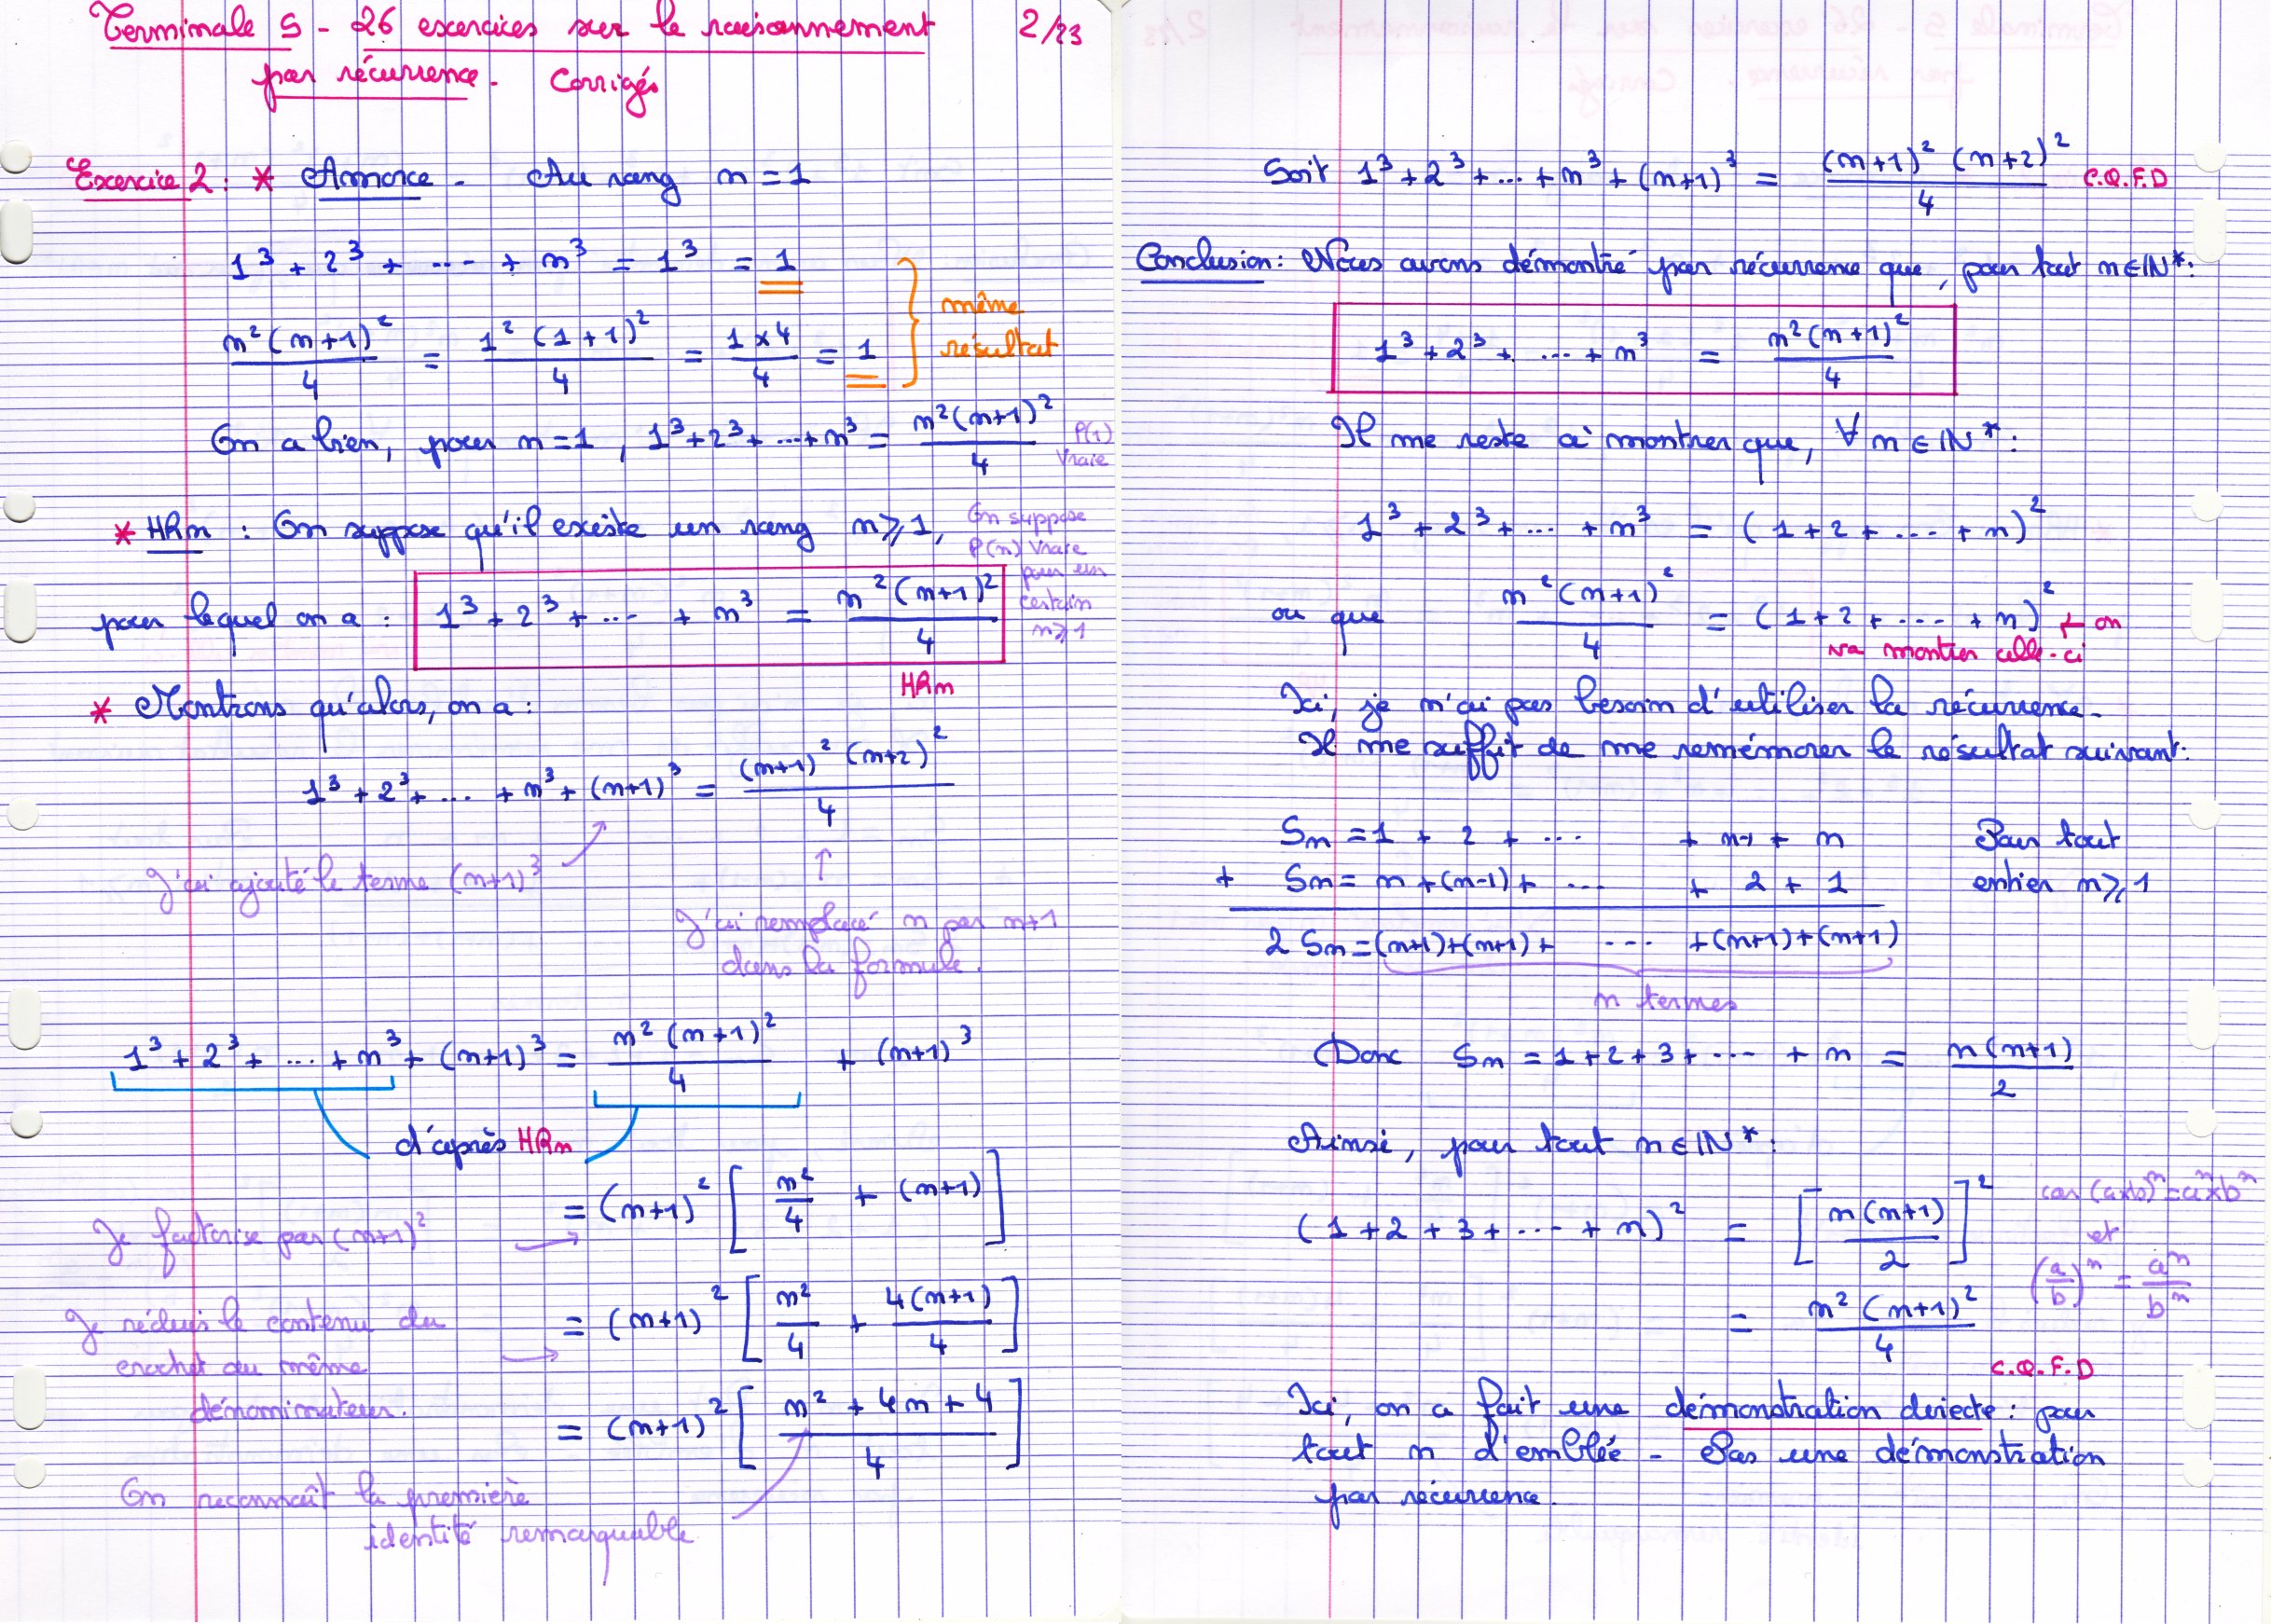 Terminale S - 26 exercices sur le raisonnement 2/23
par récurrence. Corrigés
Exercice 2 : * Amorce - Au rang n = 1
1³ + 2³ + ... + n³ = 1³ = 1
n²(n+1)²/4 = 1²(1+1)²/4 = 1×4/4 = 1
} même résultat
On a bien, pour n = 1, 1³+2³+...+n³ = n²(n+1)²/4 P(1) Vraie
* HRn : On suppose qu'il existe un rang n ⩾ 1,
pour lequel on a : 1³+2³+... + n³ = n²(n+1)²/4
HRn
On suppose P(n) vraie pour un certain n⩾1
* Montrons qu'alors, on a :
1³ + 2³ + ... + n³ + (n+1)³ = (n+1)²(n+2)²/4
J'ai ajouté le terme (n+1)³
J'ai remplacé n par n+1
dans la formule.
1³ + 2³ + ... + n³ + (n+1)³ = n²(n+1)²/4 + (n+1)³
d'après HRn
= (n+1)² [ n²/4 + (n+1) ]
Je factorise par (n+1)²
= (n+1)² [ n²/4 + 4(n+1)/4 ]
Je réduis le contenu du
crochet au même
dénominateur.
= (n+1)² [ n² + 4n + 4 / 4 ]
On reconnaît la première
identité remarquable
Soit 1³+2³+...+n³+(n+1)³ = (n+1)²(n+2)²/4 C.Q.F.D
Conclusion : Nous avons démontré par récurrence que, pour tout n∈ℕ* :
1³ + 2³ + ... + n³ = n²(n+1)²/4
Il me reste à montrer que, ∀ n ∈ ℕ* :
1³ + 2³ + ... + n³ = (1+2+...+n)²
ou que n²(n+1)²/4 = (1+2+...+n)² ← on
va montrer celle-ci
Ici, je n'ai pas besoin d'utiliser la récurrence.
Il me suffit de me remémorer le résultat suivant :
Sn = 1 + 2 + ... + n-1 + n Pour tout
+ Sn = n + (n-1) + ... + 2 + 1 entier n ⩾ 1
2 Sn = (n+1)+(n+1)+ ... +(n+1)+(n+1)
n termes
Donc Sn = 1+2+3+...+n = n(n+1)/2
Ainsi, pour tout n∈ℕ* :
(1+2+3+...+n)² = [ n(n+1)/2 ]²
car (a×b)ⁿ = aⁿ×bⁿ
et
(a/b)ⁿ = aⁿ/bⁿ
= n²(n+1)²/4
C.Q.F.D
Ici, on a fait une démonstration directe : pour
tout n d'emblée - Pas une démonstration
par récurrence.